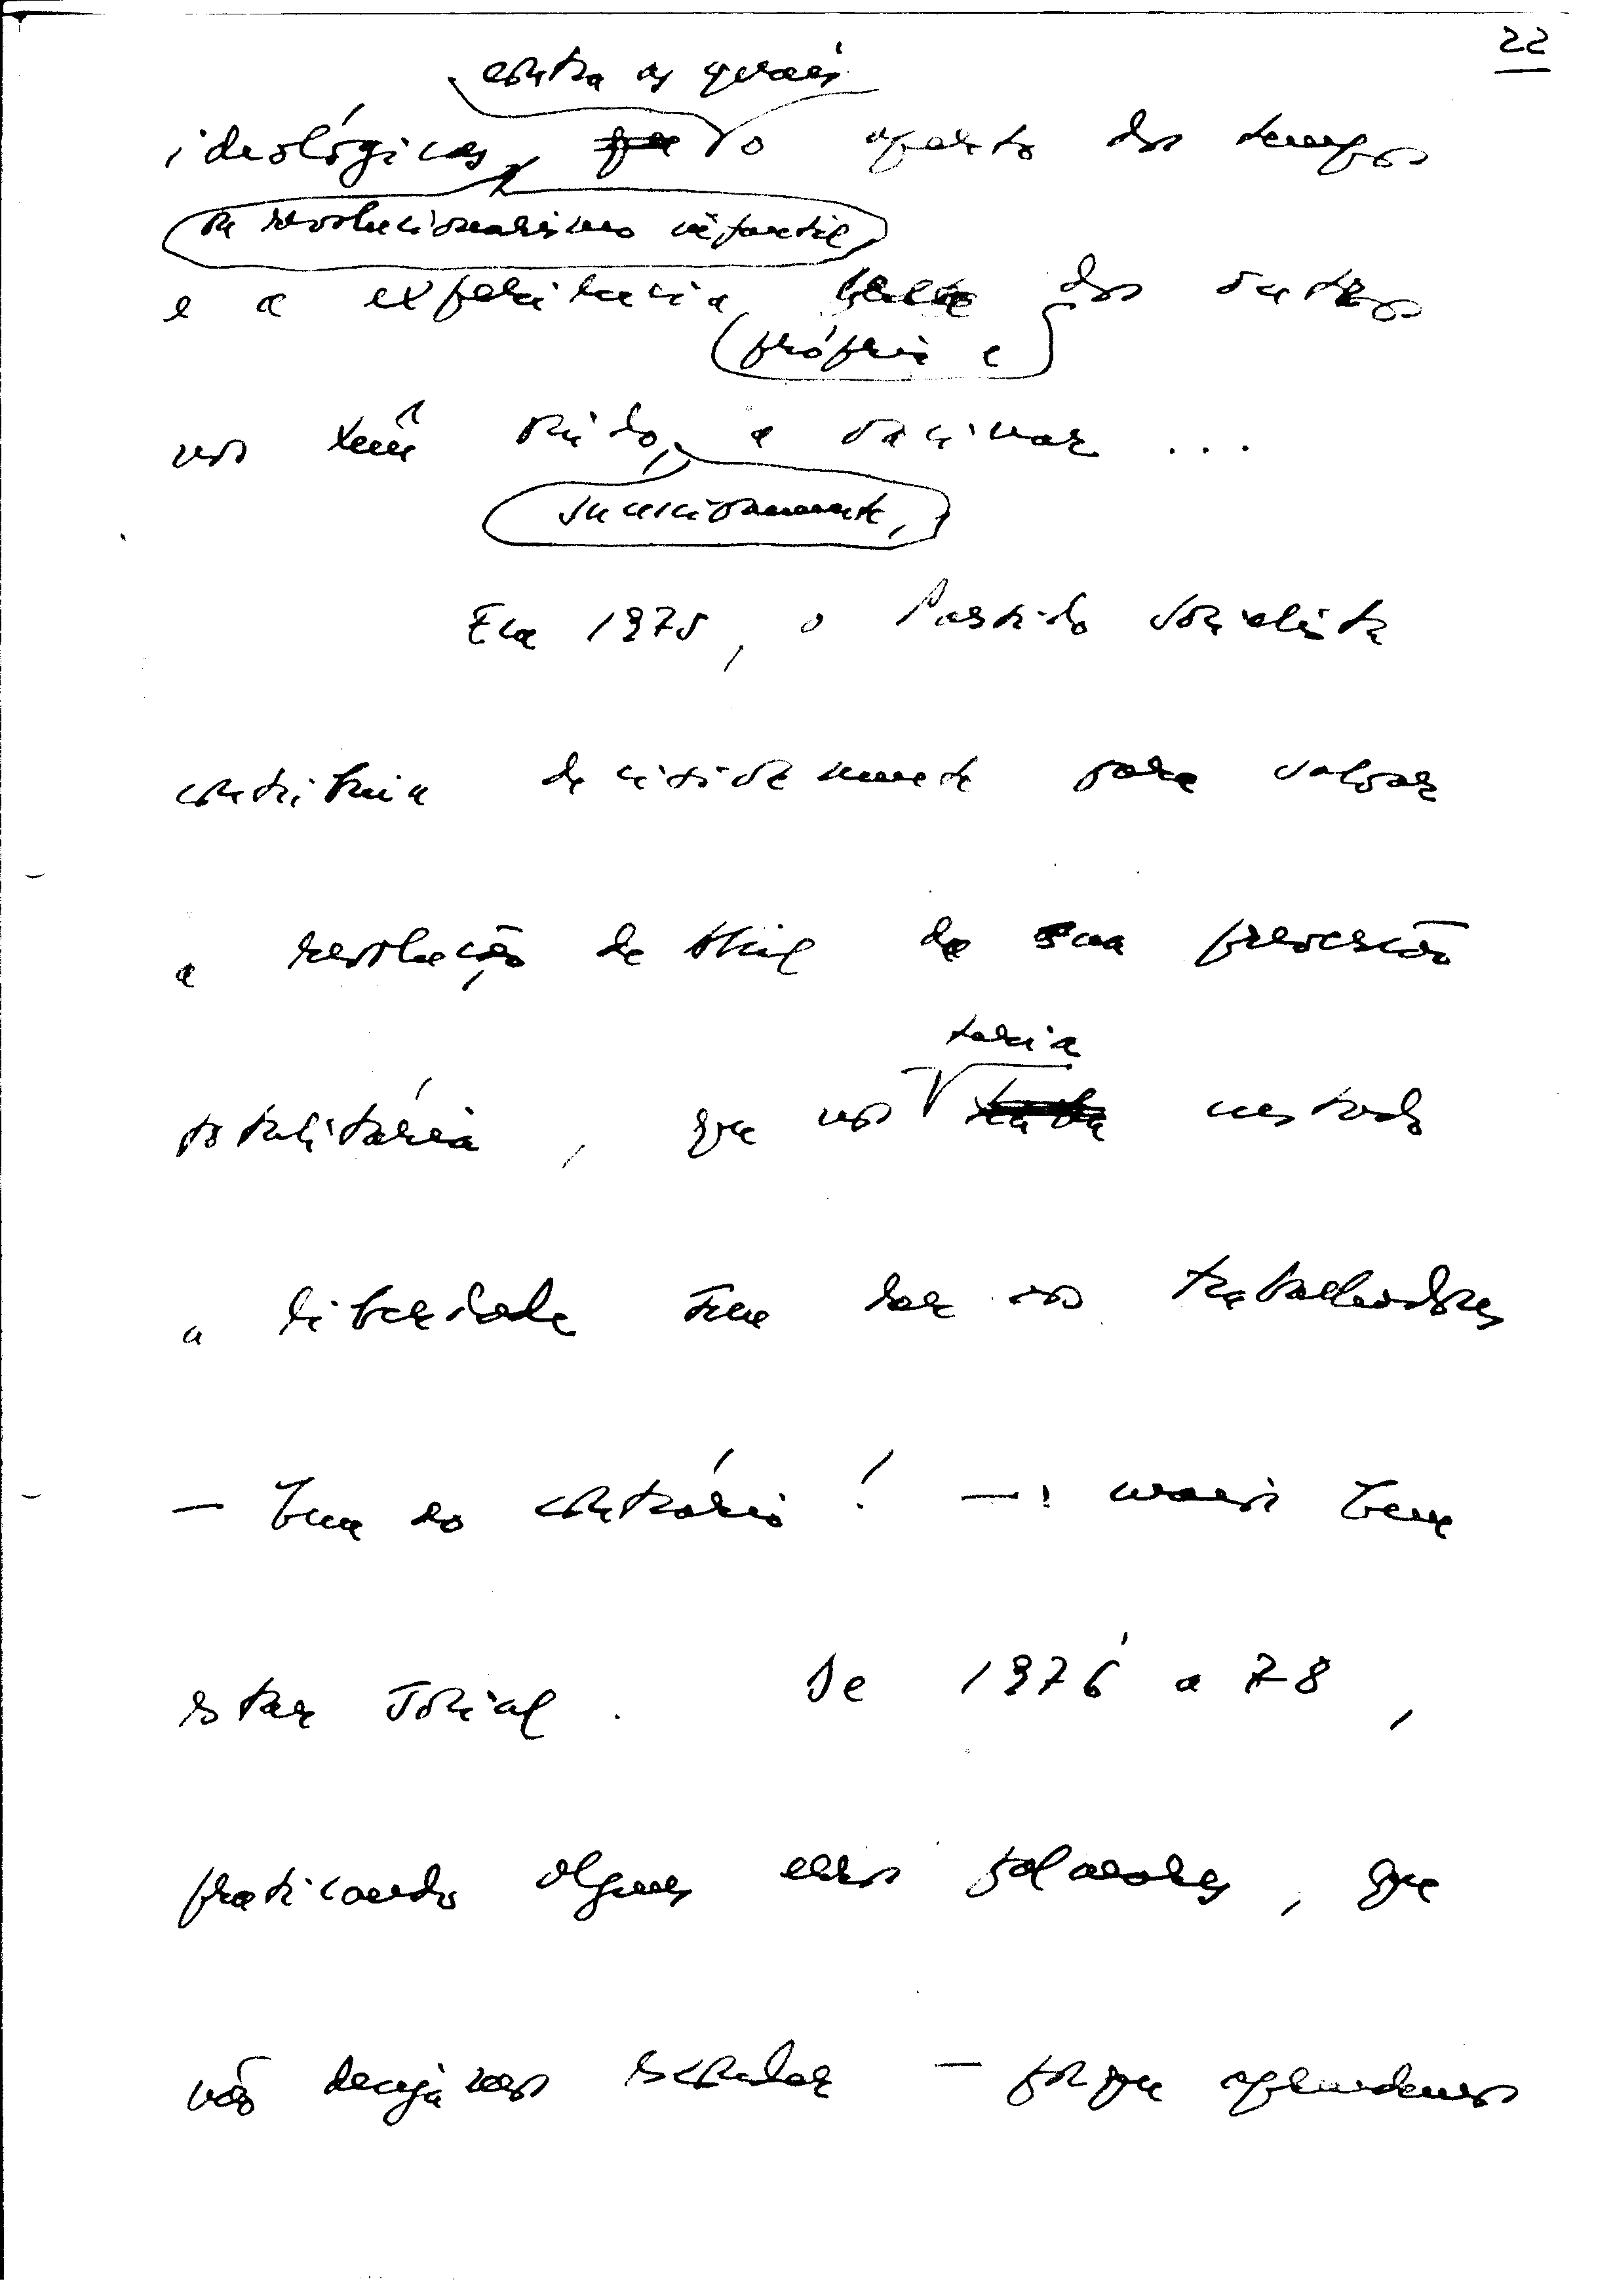 22
contra as quais
ideológicas, o aperto dos tempos
ou revolucionarismo infantil,
e a experiência dos outros
própria e
nos têm vindo, a vacinar ...
sucessivamente,
Em 1975, o Partido Socialista
contribuiu decisivamente para salvar
a revolução de Abril da sua perversão
totalitária, que nos teria custado
a liberdade sem dar aos trabalhadores
— bem ao contrário! — mais bem
estar social. De 1976 a 78,
praticando alguns erros palmares, que
não desejamos esconder — porque aprendemos